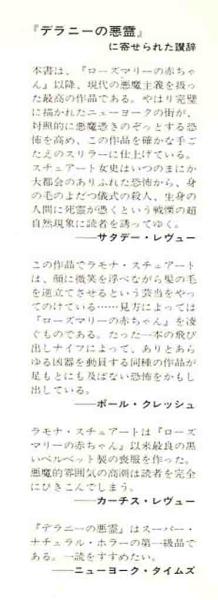 『デラニーの悪霊』
に寄せられた讃辞
本書は、『ローズマリーの赤ちゃ
ん』以降、現代の悪魔主義を扱っ
た最高の作品である。やはり完璧
に描かれたニューヨークの街が、
対照的に悪魔憑きのぞっとする恐
怖を高め、この作品を確かな手ご
たえのスリラーに仕上げている。
スチュアート女史はいつのまにか
大都会のありふれた恐怖から、身
の毛のよだつ儀式の殺人、生身の
人間に死霊が憑くという戦慄の超
自然現象に読者を誘ってゆく。
――サタデー・レヴュー
この作品でラモナ・スチュアート
は、顔に微笑を浮べながら髪の毛
を逆立てさせるという芸当をやっ
てのけている……見方によっては
『ローズマリーの赤ちゃん』を凌
ぐものである。たった一本の飛び
出しナイフによって、ありとあら
ゆる凶器を動員する同種の作品が
足もとにも及ばない恐怖をかもし
出している。
――ポール・クレッシュ
ラモナ・スチュアートは『ローズ
マリーの赤ちゃん』以来最良の黒
いベルベット製の喪服を作った。
悪魔的雰囲気の高潮は読者を完全
にひきこんでしまう。
――カーチス・レヴュー
『デラニーの悪霊』はスーパー・
ナチュラル・ホラーの第一級品で
ある。一読をすすめたい。
――ニューヨーク・タイムズ